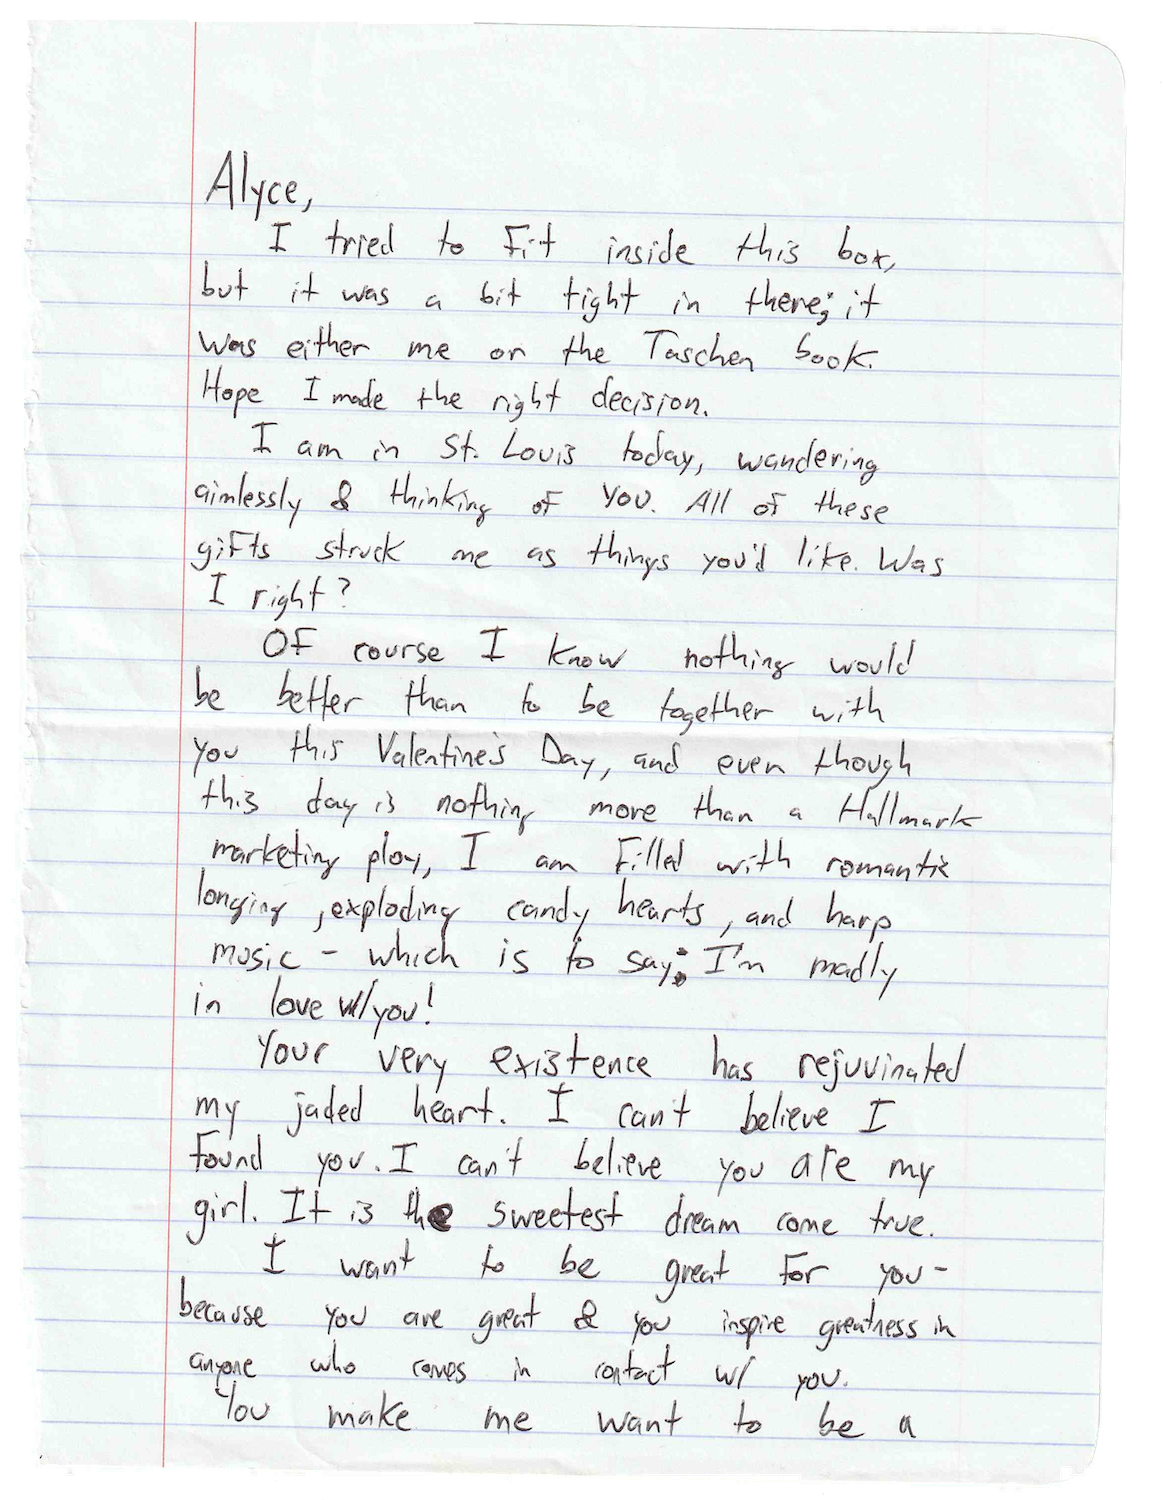 Alyce,
I tried to fit inside this box,
but it was a bit tight in there; it
was either me or the Taschen book.
Hope I made the right decision.
I am in St. Louis today, wandering
aimlessly & thinking of you. All of these
gifts struck me as things you'd like. Was
I right?
Of course I know nothing would
be better than to be together with
you this Valentine's Day, and even though
this day is nothing more than a Hallmark
marketing ploy, I am filled with romantic
longing, exploding candy hearts, and harp
music - which is to say: I'm madly
in love w/you!
Your very existence has rejuvinated
my jaded heart. I can't believe I
found you. I can't believe you are my
girl. It is the sweetest dream come true.
I want to be great for you-
because you are great & you inspire greatness in
anyone who comes in contact w/ you.
You make me want to be a